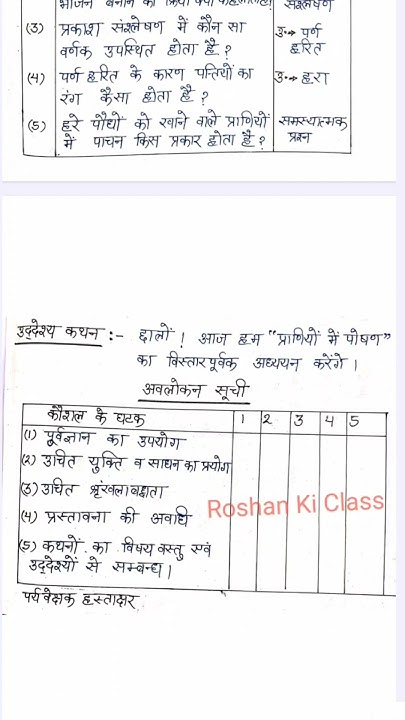 भोजन बनाने की क्रिया क्या कहलाती है? संश्लेषण
(3) प्रकाश संश्लेषण में कौन सा उ→ पर्ण
वर्णक उपस्थित होता है? हरित
(4) पर्ण हरित के कारण पत्तियों का उ→ हरा
रंग कैसा होता है?
(5) हरे पौधों को खाने वाले प्राणियों समस्यात्मक
में पाचन किस प्रकार होता है? प्रश्न
उद्देश्य कथन :- छात्रों! आज हम "प्राणियों में पोषण"
का विस्तारपूर्वक अध्ययन करेंगे।
अवलोकन सूची
कौशल के घटक 1 2 3 4 5
(1) पूर्वज्ञान का उपयोग
(2) उचित युक्ति व साधन का प्रयोग
(3) उचित श्रृंखलाबद्धता
Roshan Ki Class
(4) प्रस्तावना की अवधि
(5) कथनों का विषय वस्तु एवं
उद्देश्यों से सम्बन्ध।
पर्यवेक्षक हस्ताक्षर